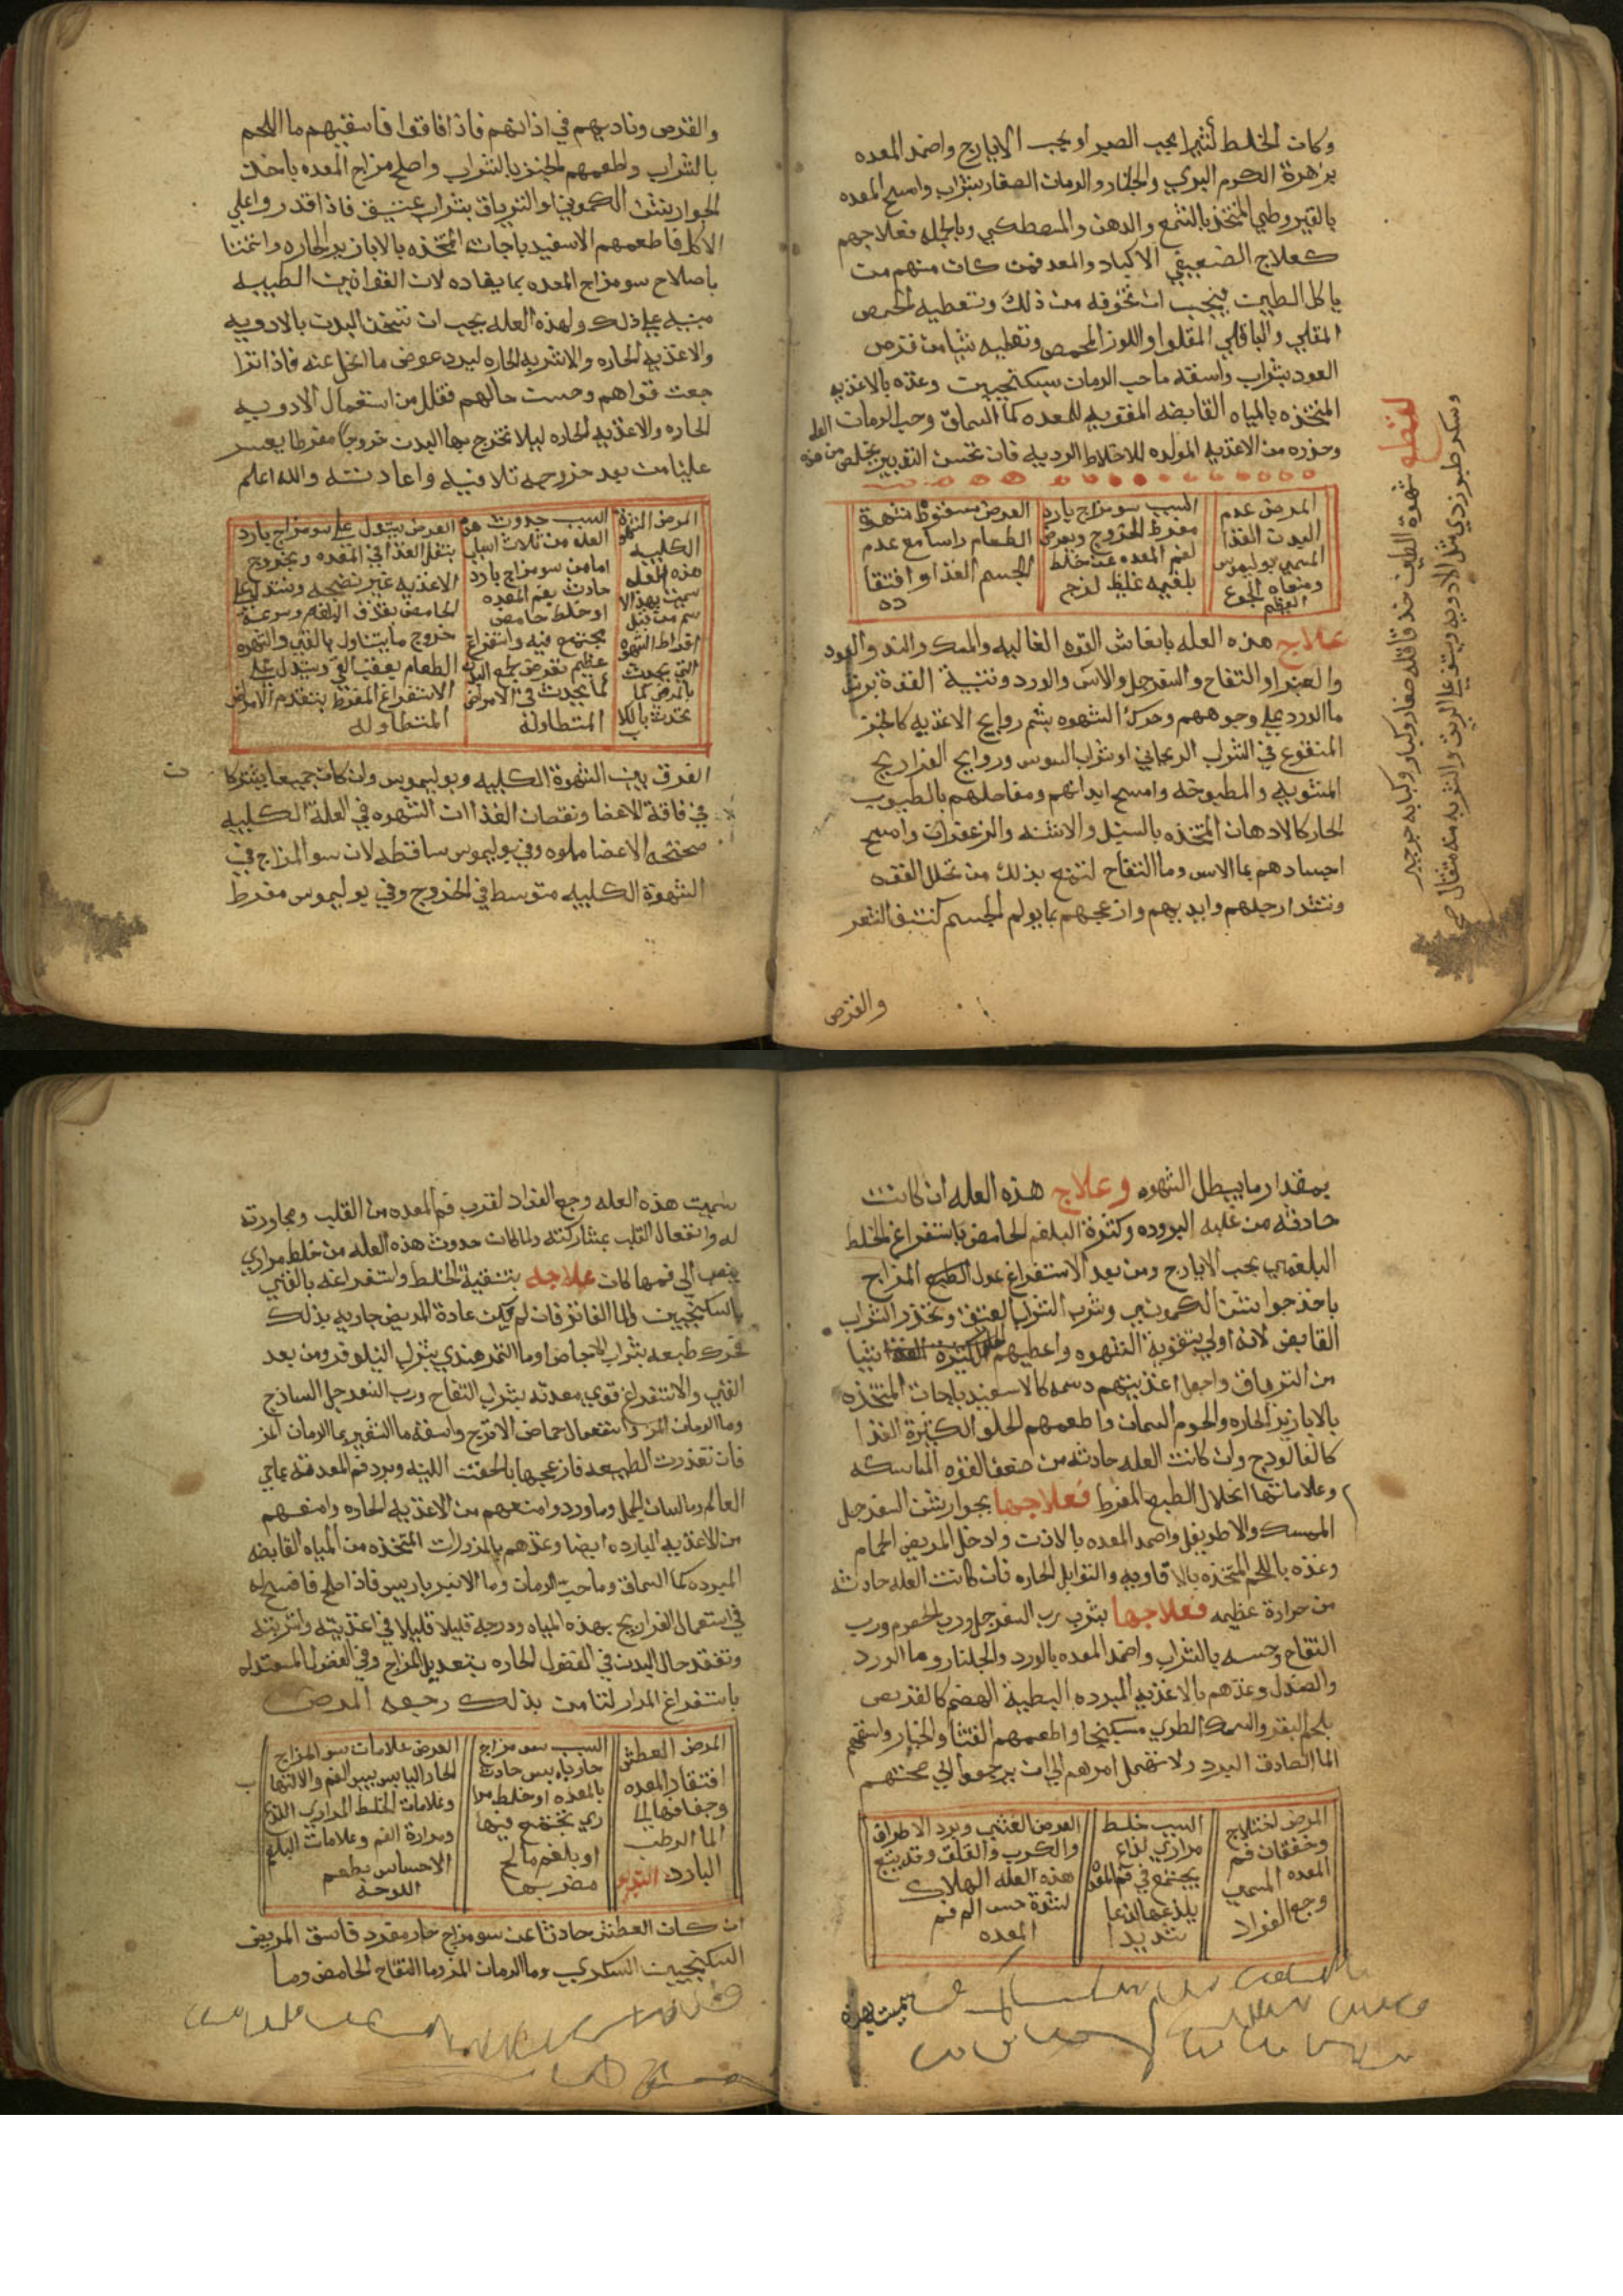 وكان الخلط لثيرا بحب الصبر او بحب الايارج واضمد المعده
بزهرة الكرم البري والجلنار والرمان الصغار بشراب وامسح المعده
بالقيروطي المتخذ بالشمع والدهن والمصطكي وبالجمله فعلاجهم
كعلاج الضعيفي الاكباد والمعد فمن كان منهم من
ياكل الطين فيجب ان تخوفه من ذلك وتعطيه الحمص
المقلي والباقلي المقلوا واللوز المحمص وتعطيه شيا من قرص
العود بشراب واسقه ما حب الرمان بسكنجبين وغذه بالاغذيه
المتخذه بالمياه القابضه المقويه للمعده كما السماق وحب الرمان
وحذره من الاغذيه المولده للاخلاط الرديه فان بحسن التدبير يتخلص من هذه
المرض عدم
البدن الغذا
المسمي بوليموس
ومعناه الجوع
العظيم
السبب سو مزاج بارد
مفرط الخروج ويعرض
لفم المعده عن خلط
بلغمي غليظ لزج
العرض سقوط شهوة
الطعام راسا مع عدم
الجسم الغذا وافتقا
ده
علاج هذه العله بانعاش القوه الغاليه والمسك والند والعود
والعنبر او التفاح والسفرجل والاس والورد وتنبية القوة برش
ما الورد علي وجوههم وحرك الشهوه بشم روايح الاغذيه كالخبز
المنقوع في الشراب الريحاني او شراب السوس وروايح الفراريج
المشويه والمطبوخه وامسح ابدانهم ومفاصلهم بالطيوب
الحار كالادهان المتخذه بالسنبل والاشنه والزعفران وامسح
اجسادهم بما الاس وما التفاح لتمنع بذلك من تحلل القوه
وشد ارجلهم وايديهم وازعجهم بما يولم الجسم كنتف الشعر
والقرص
لقطع شهوة الطين خذ قاقله صغار وكبار وكبابه
وسكر طبرزدي مثل الادويه ويستف علي الريق والشربه منه مثقال
والقرص وناديهم في اذانهم فاذا افاقوا فاسقيهم ما اللحم
بالشراب واطعمهم الخبز بالشراب واصلح مزاج المعده باحد
الجوارشن الكموني او الترياق بشراب عتيق فاذا قدروا علي
الاكل فاطعمهم الاسفيدباجات المتخذه بالابازير الحاره واعتننا
باصلاح سو مزاج المعده بما يضاده لان القوانين الطبيه
مبنيه علي ذلك ولهذه العله يجب ان تسخن البدن بالادويه
والاغذيه الحاره والاشربه الحاره ليرد عوض ما انحل عنه فاذا اترا
جعت قواهم وحسنت حالهم فقلل من استعمال الادويه
الحاره والاغذيه الحاره ليلا تخرج بها البدن خروجا مفرطا يعسر
علينا من بعد خروجه تلافيه واعادته والله اعلم
المرض الشهوة
الكلبيه
هذه العله
سميت بهذا الا
سم من قبل
افراط الشهوه
التي يحدث
بالمرض كما
تحدث بالكلا
ب
السبب حدوث هذه
العله من ثلاث اسباب
اما من سو مزاج بارد
حادث بفم المعده
او خلط حامض
يجتمع فيه واستفراغ
عظيم يعرض لجميع البدن
كما يحدث في الامراض
المتطاولة
العرض يستدل علي سو مزاج بارد
بثقل الغذا في المعده وبخروج
الاغذيه غير نضجه ويستدل علي
الحامض بقذف البلغم وسرعة
خروج ما يتناول بالقي والشهوه
الطعام يعقب القي ويستدل علي
الاستفراغ المفرط بتقدم الامراض
المتطاوله
الفرق بين الشهوة الكلبيه وبوليموس وان كان جميعا يشتركا
في فاقة الاعضا ونقصان الغذا ان الشهوه في العلة الكلبيه
صحيحه الاعضا مملوه وفي بوليموس ساقطه لان سو المزاج في
الشهوة الكلبيه متوسط في الخروج وفي بوليموس مفرط
بمقدار ما يبطل الشهوه وعلاج هذه العله ان كانت
حادثه من غلبه البروده وكثرة البلغم الحامض باستفراغ الخلط
البلغمي بحب الايارج ومن بعد الاستفراغ عدل الطبع المزاج
باخذ جوارشن الكموني وشرب الشراب العتيق وتحذر الشراب
القابض لانه اولي بتقوية الشهوه واعطيهم شيا
من الترياق واجعل اغذيتهم دسمه كالاسفيدباجات المتخذه
بالابازير الحاره واللحوم السمان واطعمهم الحلو الكثيرة الغذا
كالفالوذج وان كانت العله حادثه من ضعف القوه الماسكه
وعلاماتها انحلال الطبع المفرط فعلاجها بجوارشن السفرجل
الممسك والاطريفل واضمد المعده باللاذن وادخل المريض الحمام
وغذه باللحم المتخذه بالافاويه والتوابل الحاره فان كانت العله حادثه
من حرارة عظيمه فعلاجها بشرب رب السفرجل ورب الحصرم ورب
التفاح وحسه بالشراب واضمد المعده بالورد والجلنار وما الورد
والصندل وغذهم بالاغذيه المبرده البطية الهضم كالقريص
بلحم البقر والسمك الطري مسكبجا واطعمهم القثا والخيار واسقهم
الما الصادق البرد ولا تهمل امرهم الي ان يرجعوا الي صحتهم
المرض اختلاج
وخفقان فم
المعده المسمي
وجع الفواد
السبب خلط
مراري لذاع
يجتمع في فم المعده
يلذعها لذعا
شديدا
العرض الغثي وبرد الاطراف
والكرب والقلق وقد يتبع
هذه العله الهلاك
لشدة حس الم فم
المعده
سميت هذه
سميت هذه العله وجع الفواد لقرب فم المعده من القلب ومجاورته
له وانفعال القلب بمشاركته ولما كان حدوث هذه العله من خلط مراري
ينصب الي فمها كان علاجه بتنقية الخلط واستفراغه بالقي
بالسكنجبين والما الفاتر فان لم يكن عادة المريض جاريه بذلك
فحرك طبعه بشراب الاجاص او ما التمر هندي بشراب النيلوفر ومن بعد
القي والاستفراغ قوي معدته بشراب التفاح ورب السفرجل الساذج
وما الرمان المز واستعمال حماض الاترج واسقه ما الشعير بما الرمان المز
فان تعذرت الطبيعه فازعجها بالحقن اللينه وبرد فم المعده بماحي
العالم وما لسان الحمل وما ورد وامنعهم من الاغذيه الحاره وامنعهم
من الاغذيه البارده ايضا وغذهم بالمزورات المتخذه من المياه القابضه
المبرده كما السماق وما حب الرمان وما الانبرباريس فاذا صلح فافسح له
في استعمال الفراريج بهذه المياه ودرجه قليلا قليلا في اغذيته واشربته
وتفقد حال البدن في الفصول الحاره بتعديل المزاج وفي الفصول المعتدله
باستفراغ المرار لتامن بذلك رجعه المرض
المرض العطش
افتقار المعده
وجفافها الي
الما الرطب
البارد التدبير
السبب سو مزاج
حار يابس حادث
بالمعده او خلط مرا
ري يجتمع فيها
او بلغم مالح
مضر بها
العرض علامات سو المزاج
الحار اليابس يبس الفم والالتهاب
وعلامات الخلط المراري اللذع
ومرارة الفم وعلامات البلغم
الاحساس بطعم
الملوحه
ان كان العطش حادثا عن سو مزاج حار مفرد فاسق المريض
السكنجبين السكري وما الرمان المز وما التفاح الحامض وما